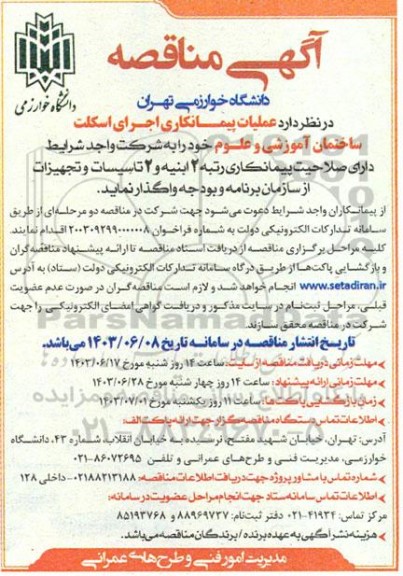 آگهی مناقصه
دانشگاه خوارزمی
دانشگاه خوارزمی تهران
در نظر دارد عملیات پیمانکاری اجرای اسکلت
ساختمان آموزشی و علوم خود را به شرکت واجد شرایط
دارای صلاحیت پیمانکاری رتبه ۲ ابنیه و ۲ تاسیسات و تجهیزات
از سازمان برنامه و بودجه واگذار نماید.
از پیمانکاران واجد شرایط دعوت می‌شود جهت شرکت در مناقصه دو مرحله‌ای از طریق
سامانه تدارکات الکترونیکی دولت به شماره فراخوان ۲۰۰۳۰۹۲۹۹۰۰۰۰۰۰۸ اقدام نمایند.
کلیه مراحل برگزاری مناقصه از دریافت اسناد مناقصه تا ارائه پیشنهاد مناقصه‌گران
و بازگشایی پاکت‌ها از طریق درگاه سامانه تدارکات الکترونیکی دولت (ستاد) به آدرس
www.setadiran.ir انجام خواهد شد و لازم است مناقصه‌گران در صورت عدم عضویت
قبلی، مراحل ثبت‌نام در سایت مذکور و دریافت گواهی امضای الکترونیکی را جهت
شرکت در مناقصه محقق سازند.
تاریخ انتشار مناقصه در سامانه تاریخ ۱۴۰۳/۰۶/۰۸ می‌باشد.
مهلت زمانی دریافت مناقصه از سایت: ساعت ۱۴ روز شنبه مورخ ۱۴۰۳/۰۶/۱۷
مهلت زمانی ارائه پیشنهاد: ساعت ۱۴ روز چهار شنبه مورخ ۱۴۰۳/۰۶/۲۸
زمان بازگشایی پاکت‌ها: ساعت ۱۱ روز یکشنبه مورخ ۱۴۰۳/۰۷/۰۱
اطلاعات تماس دستگاه مناقصه‌گزار جهت ارائه پاکت الف:
آدرس: تهران، خیابان شهید مفتح، نرسیده به خیابان انقلاب، شماره ۴۳، دانشگاه
خوارزمی، مدیریت فنی و طرح‌های عمرانی و تلفن ۸۶۰۷۲۶۹۵-۰۲۱
شماره تماس با مشاور پروژه جهت دریافت اطلاعات مناقصه: ۰۲۱۸۸۳۱۳۱۸۸-داخلی ۱۲۸
اطلاعات تماس سامانه ستاد جهت انجام مراحل عضویت در سامانه:
مرکز تماس: ۴۱۹۳۴-۰۲۱ دفتر ثبت‌نام: ۸۸۹۶۹۷۳۷ و ۸۵۱۹۳۷۶۸
هزینه نشر آگهی به عهده برنده / برندگان مناقصه می‌باشد.
مدیریت امور فنی و طرح‌های عمرانی